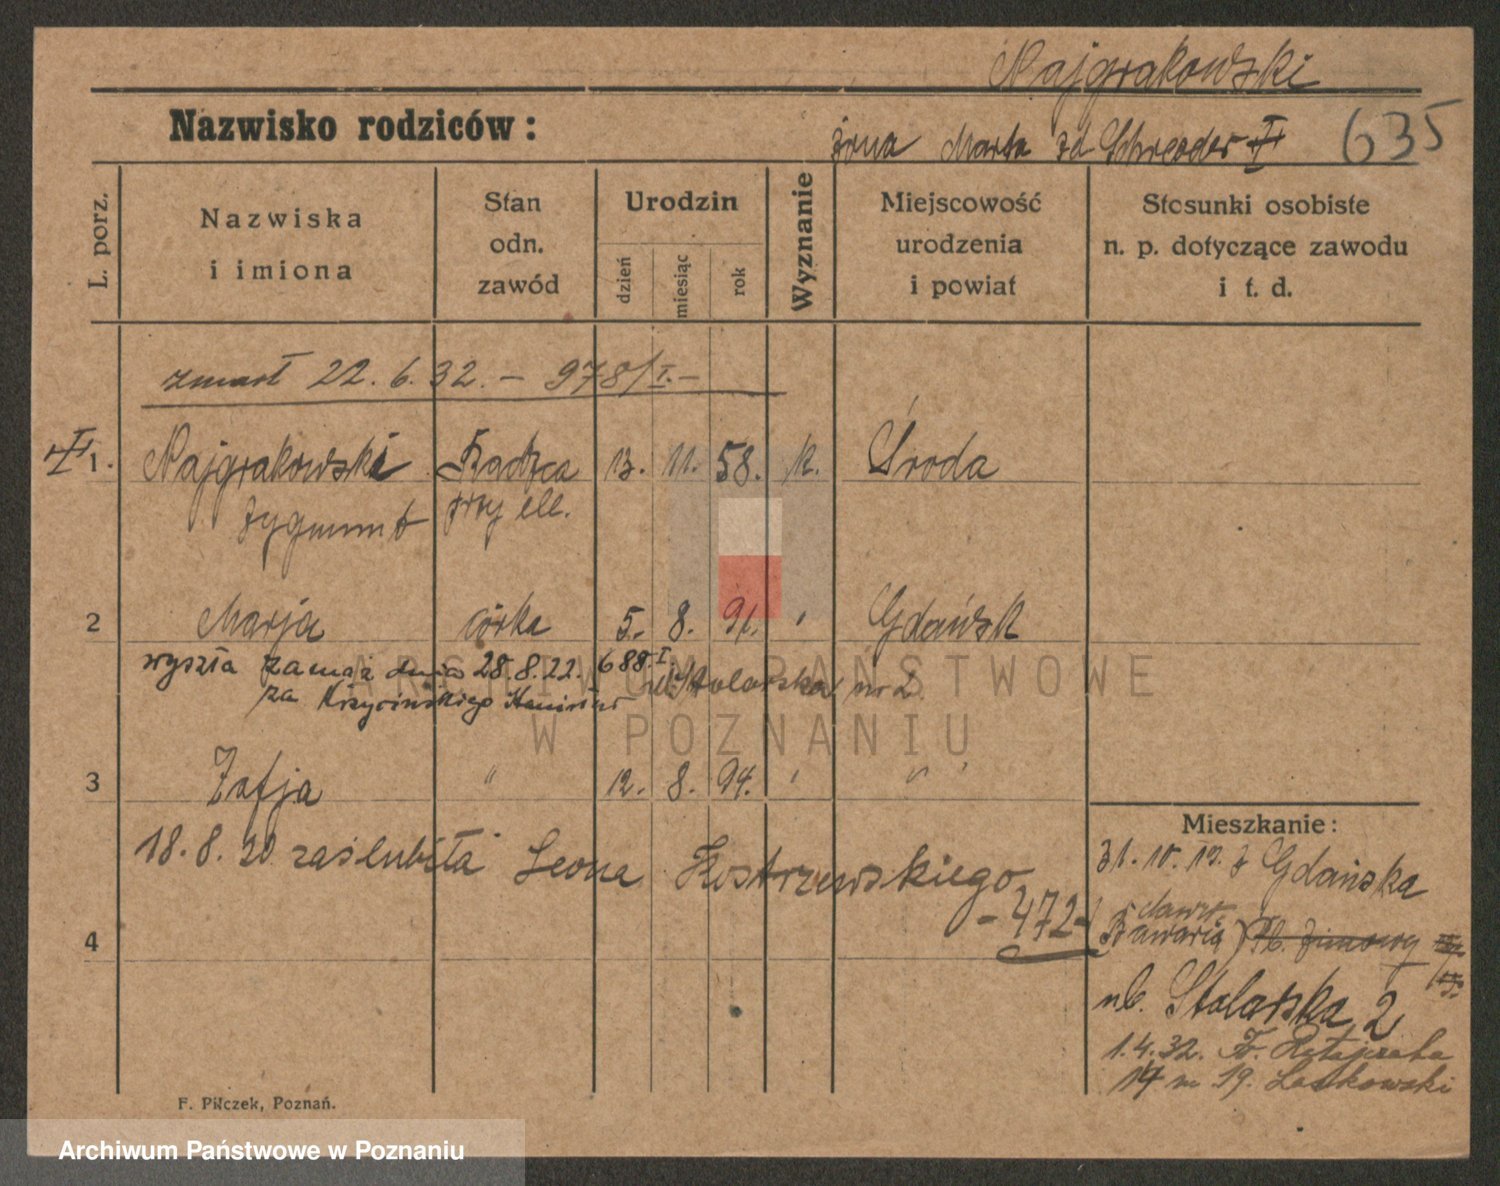 Najgrakowski
Nazwisko rodziców:
żona Marta zd Schroeder
635
L. porz.
Nazwiska i imiona
Stan odn. zawód
Urodzin
dzień
miesiąc
rok
Wyznanie
Miejscowość urodzenia i powiat
Stosunki osobiste n. p. dotyczące zawodu i t. d.
zmarł 22.6.32. – 978/I.–
1. Najgrakowski Radzca 13. 11. 58. k. Środa
Zygmunt przy
2 Marja córka 5. 8. 91. " Gdańsk
wyszła zamąż dnia 28.8.22. 688.I. ul. Stolarska nr 2
za Krzycińskiego
3 Zofja " 12. 8. 94. " " "
18.8.20 zaślubiła Leona Kostrzewskiego
– 472 –
4
Mieszkanie:
31.10.19. z Gdańska
dawn.
Pl. Zimowy
ul. Stolarska 2
1.4.32. Fr. Ratajczaka
14 m 19. Laskowski
F. Pilczek, Poznań.
ARCHIWUM PAŃSTWOWE
W POZNANIU
Archiwum Państwowe w Poznaniu